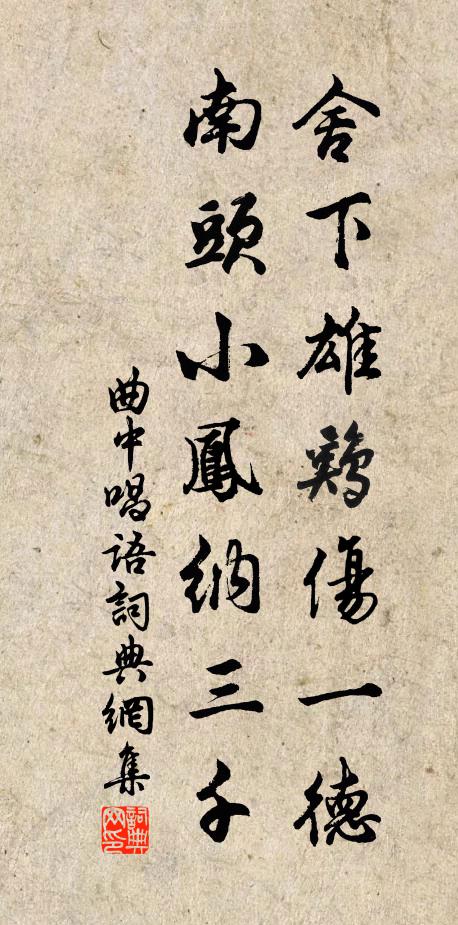 舍下雄鷄傷一德
南頭小鳳納三千
曲中唱語詞典網集
詞典網印